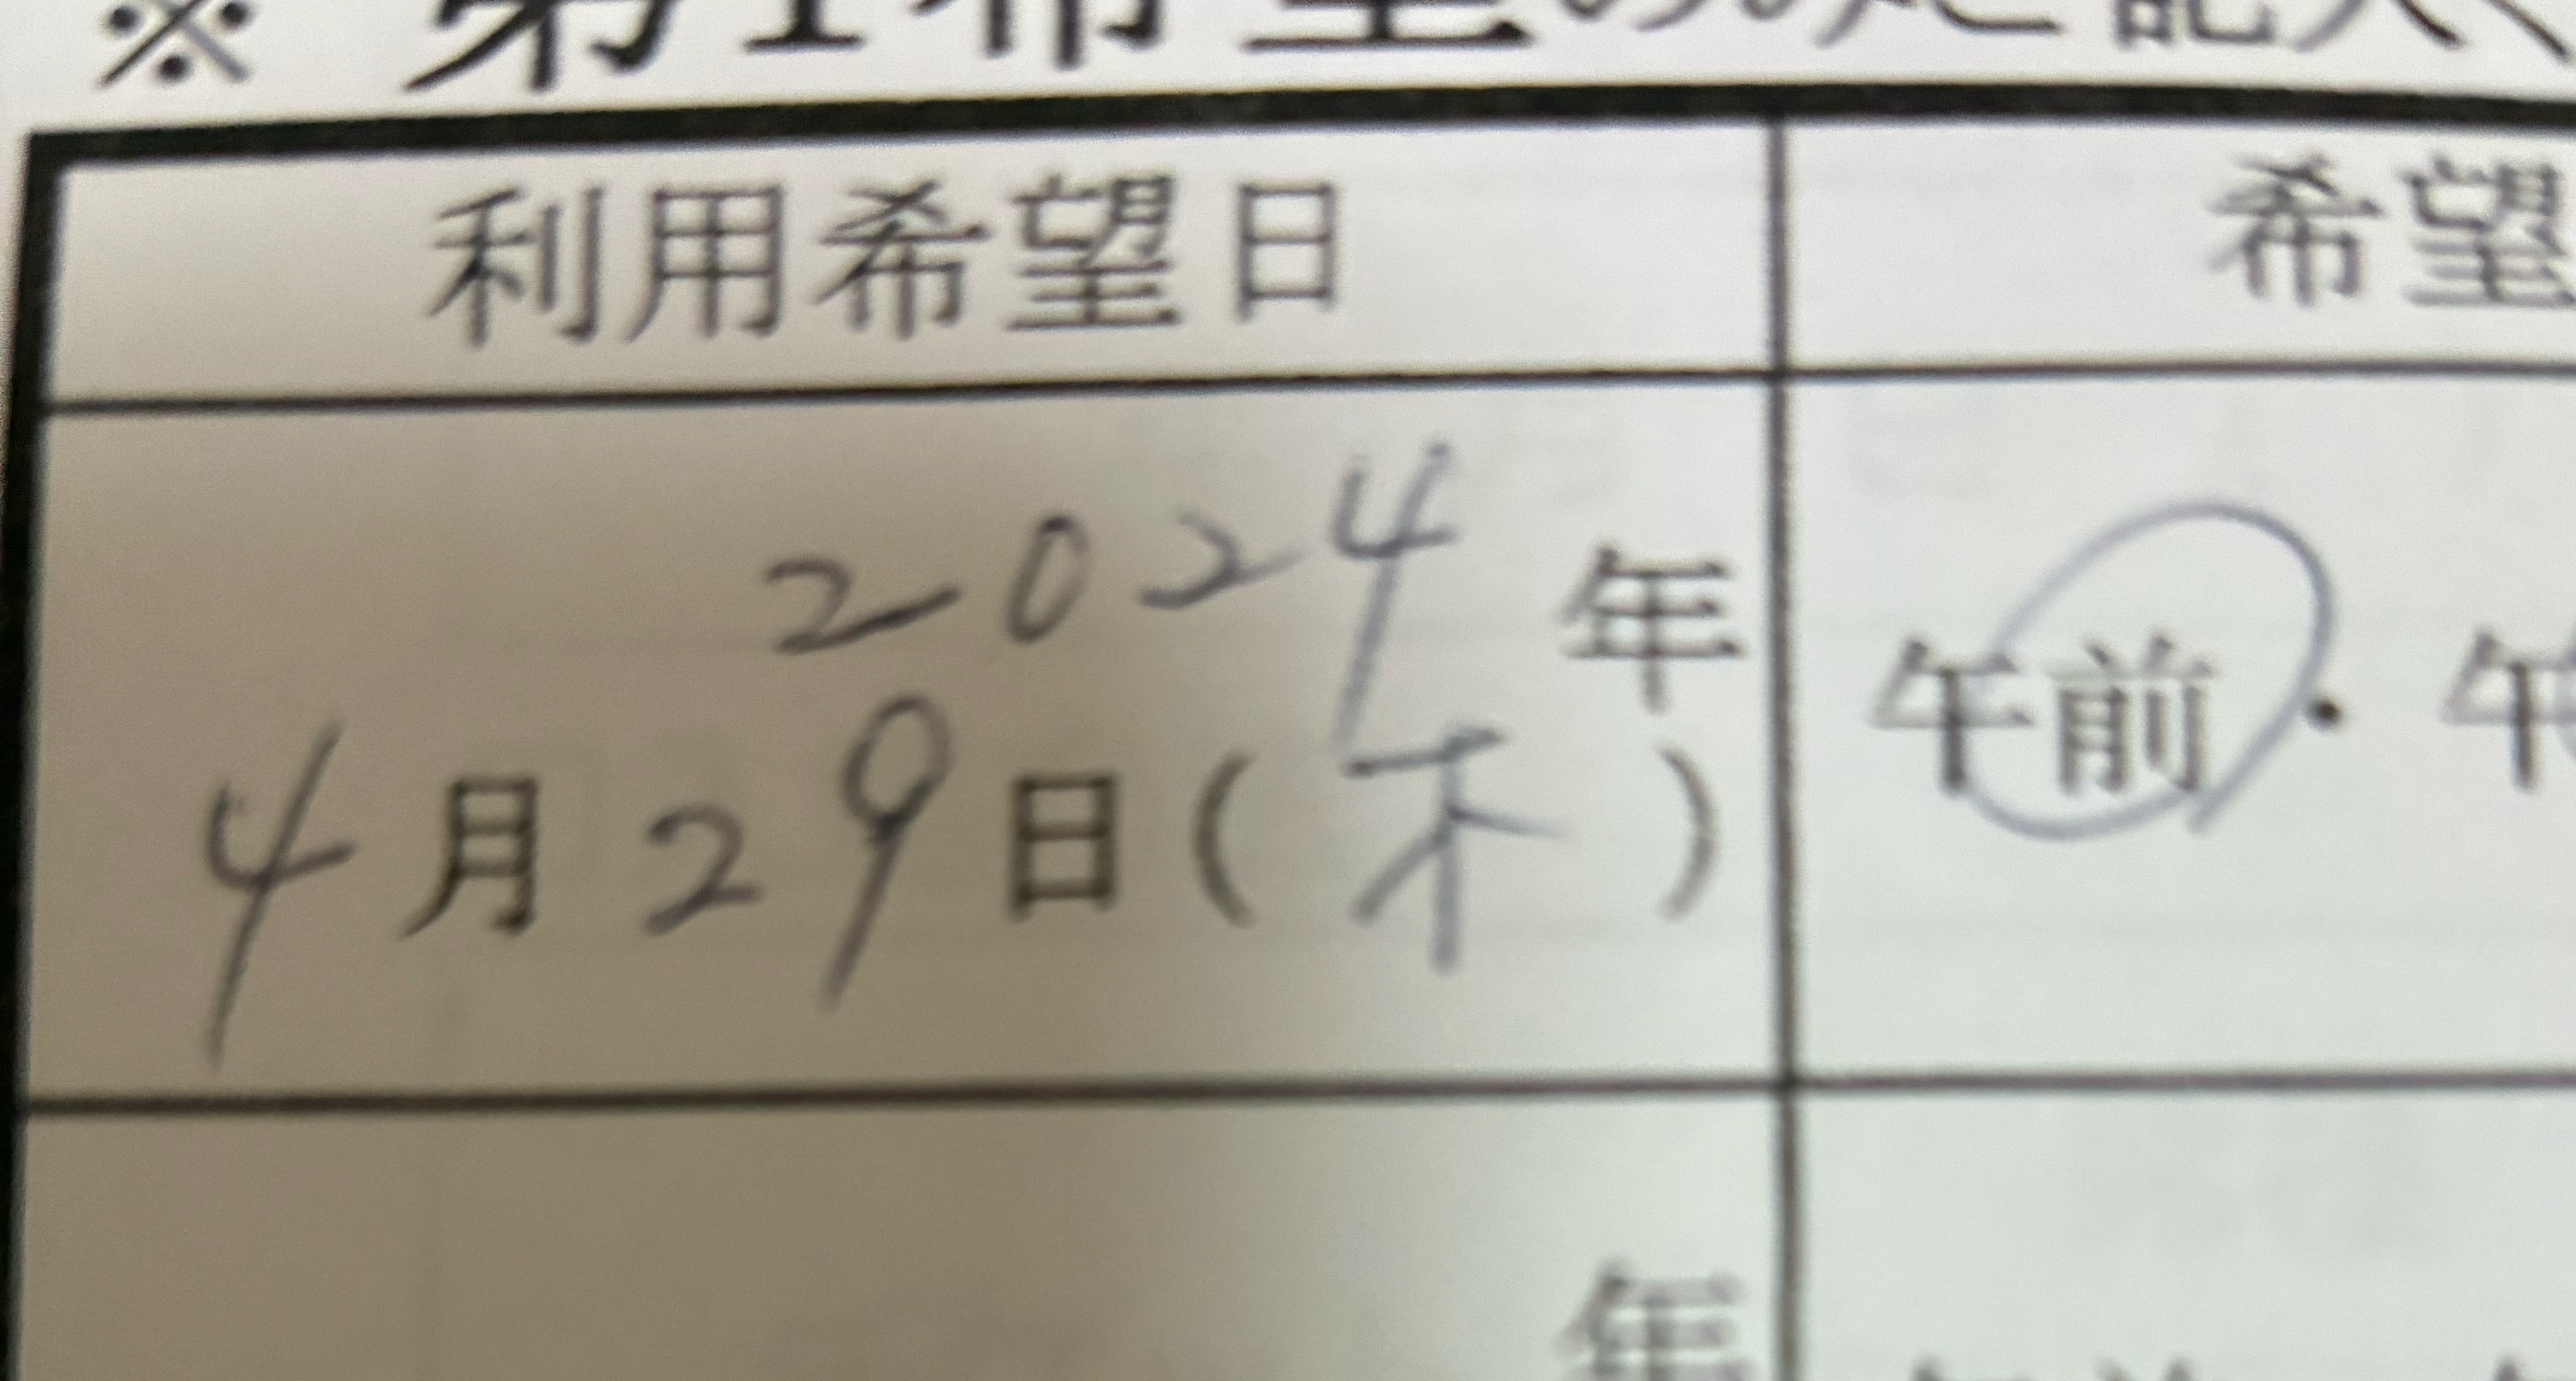 ※ 第1希望のみご記入く
利用希望日
希望
2024年
4月29日(木)
午前・午
年